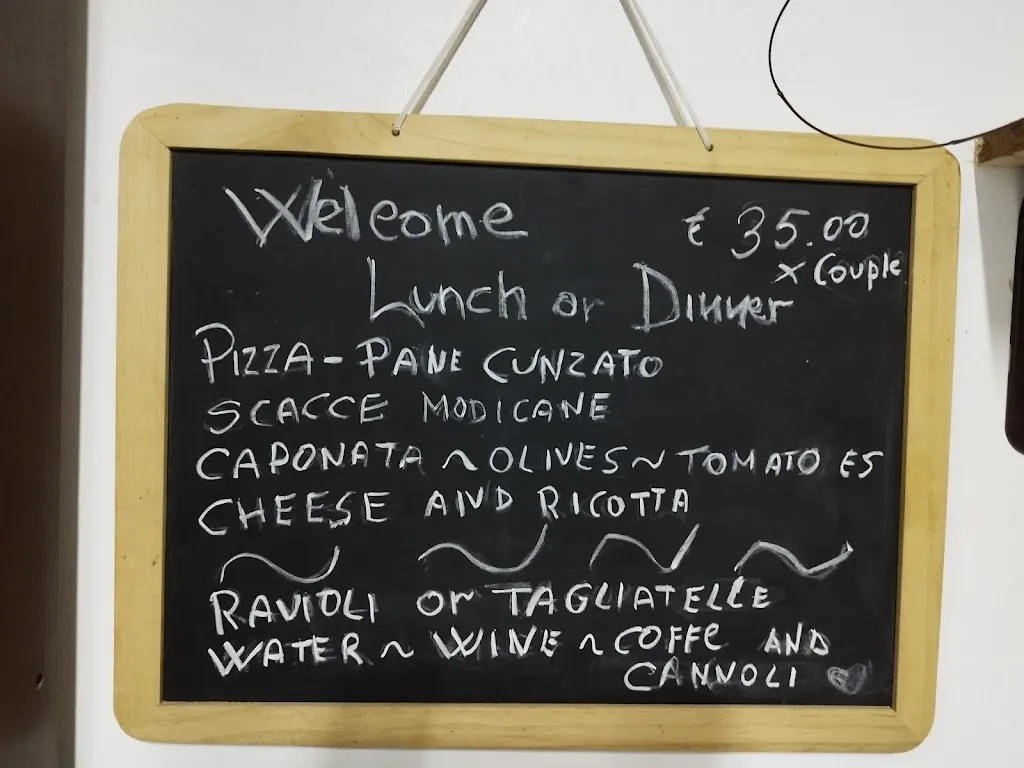 Welcome
€ 35.00
x Couple
Lunch or Dinner
PIZZA - PANE CUNZATO
SCACCE MODICANE
CAPONATA ~ OLIVES ~ TOMATO ES
CHEESE AND RICOTTA
RAVIOLI or TAGLIATELLE
WATER ~ WINE ~ COFFE AND
CANNOLI